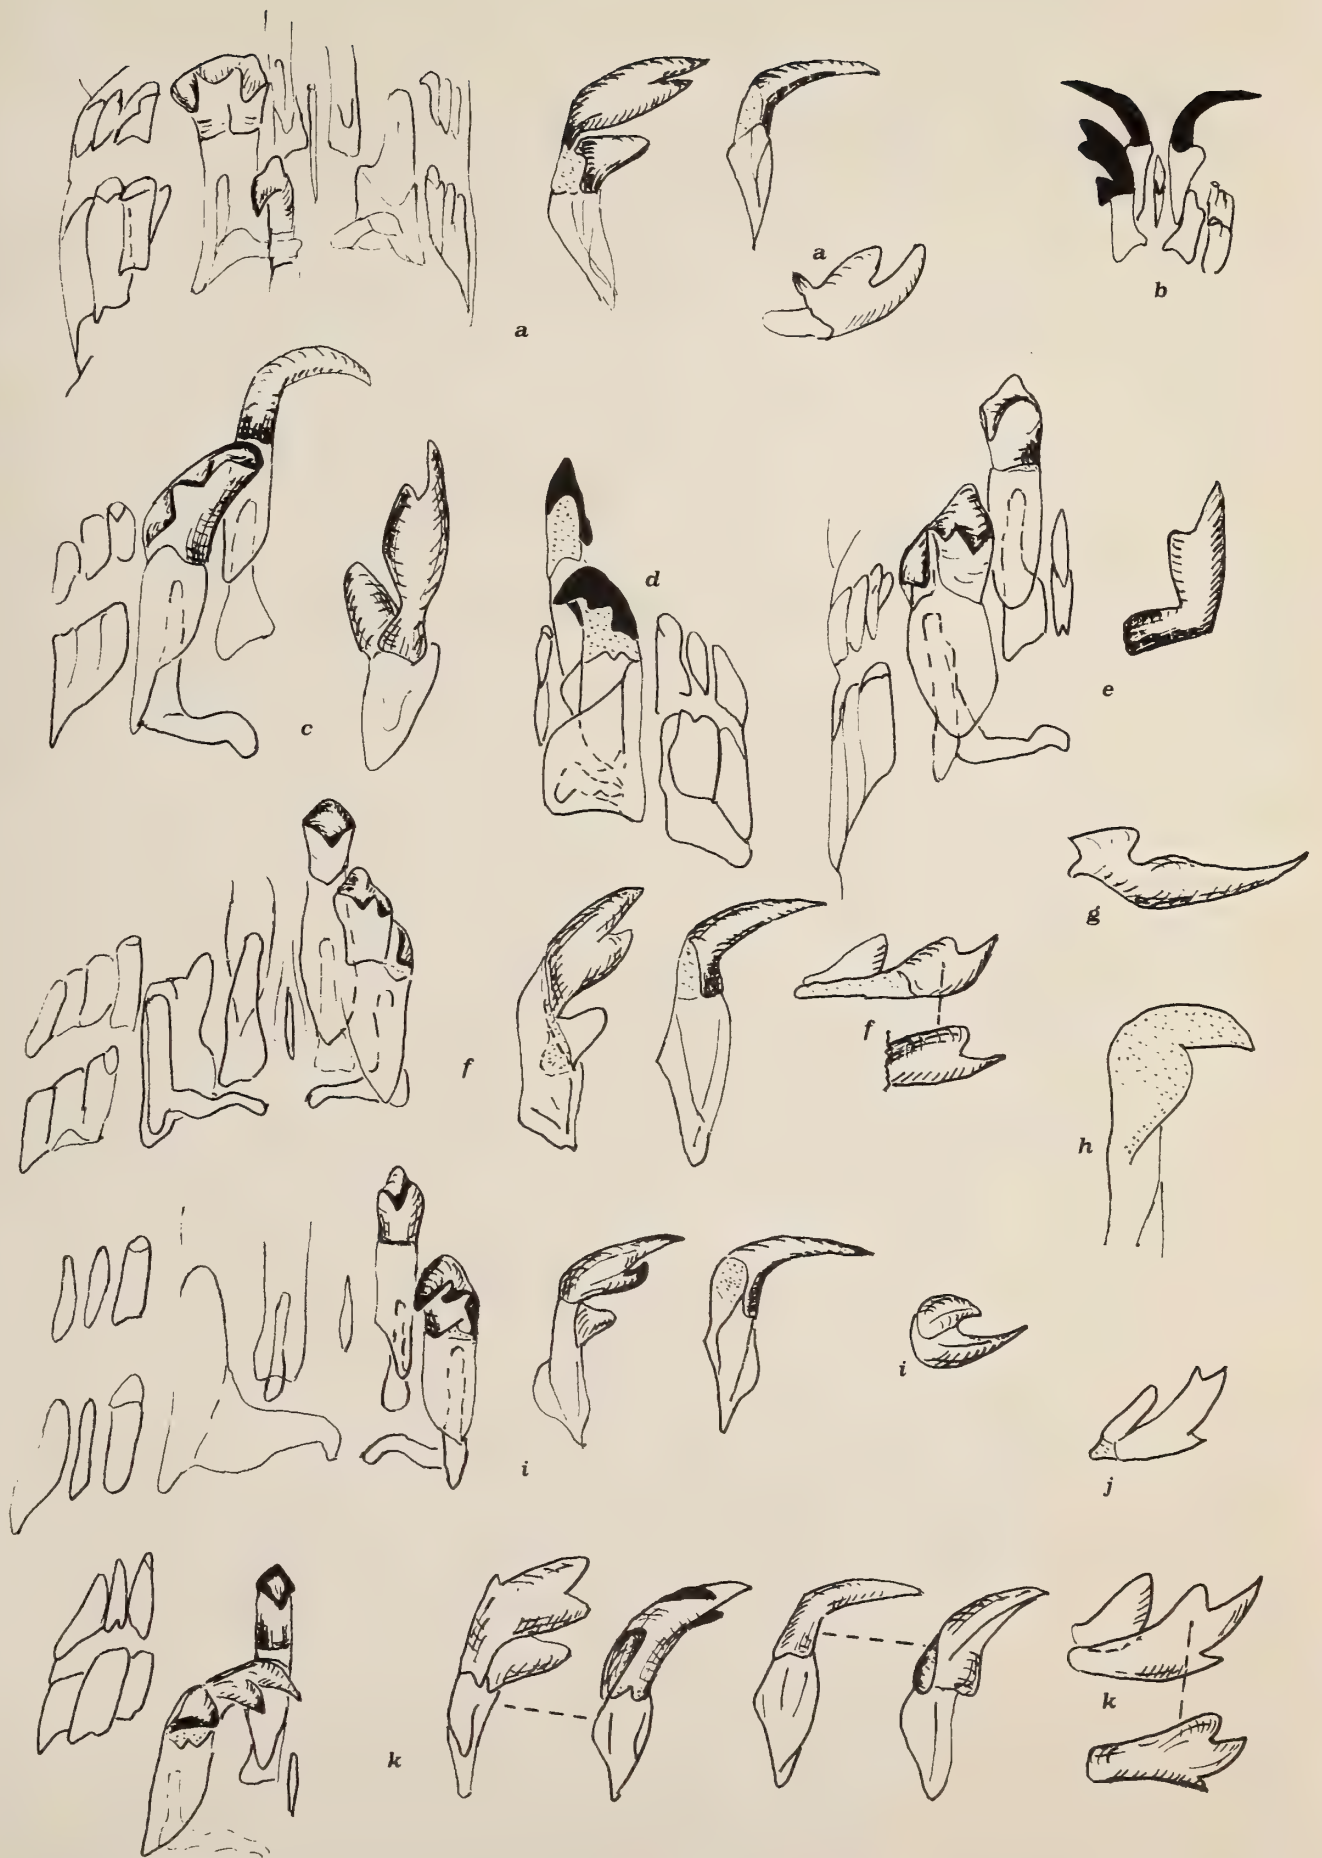 a
a
b
c
d
e
f
f
g
h
i
i
j
k
k